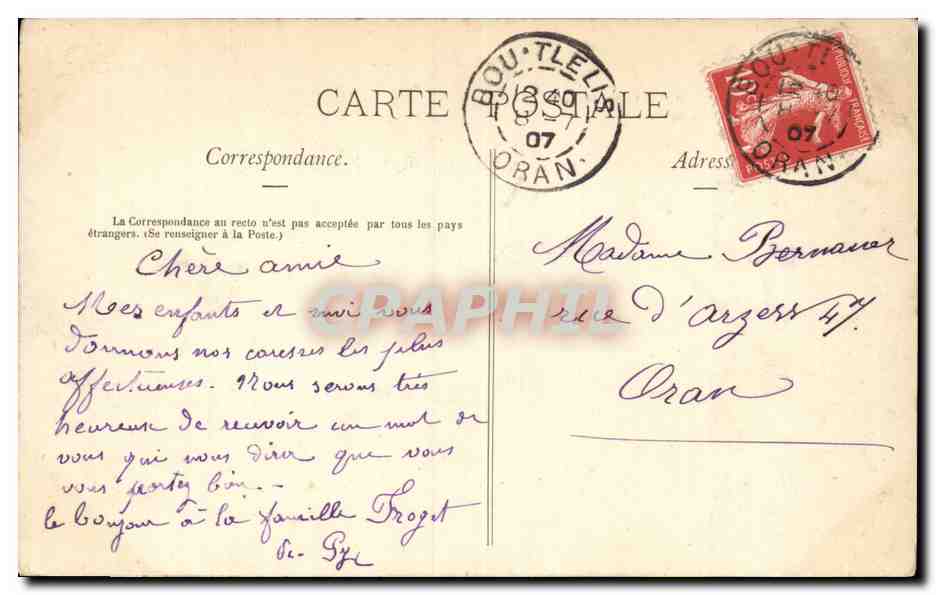 CARTE POSTALE
BOU·TLELIS
12 40
8 -7
07
ORAN.
BOU·TL
07
ORAN
REPUBLIQUE FRANCAISE
POSTES
Correspondance.
La Correspondance au recto n'est pas acceptée par tous les pays
étrangers. (Se renseigner à la Poste.)
Chère amie
Mes enfants et moi vous
donnons nos caresses les plus
affectueuses. Nous serons très
heureuse de recevoir un mot de
vous qui nous direr que vous
vous portez bien.-
le bonjour à la famille Froget
de
Adress
Madame Bernauer
rue d'arzew 47.
Oran
CPAPHIL